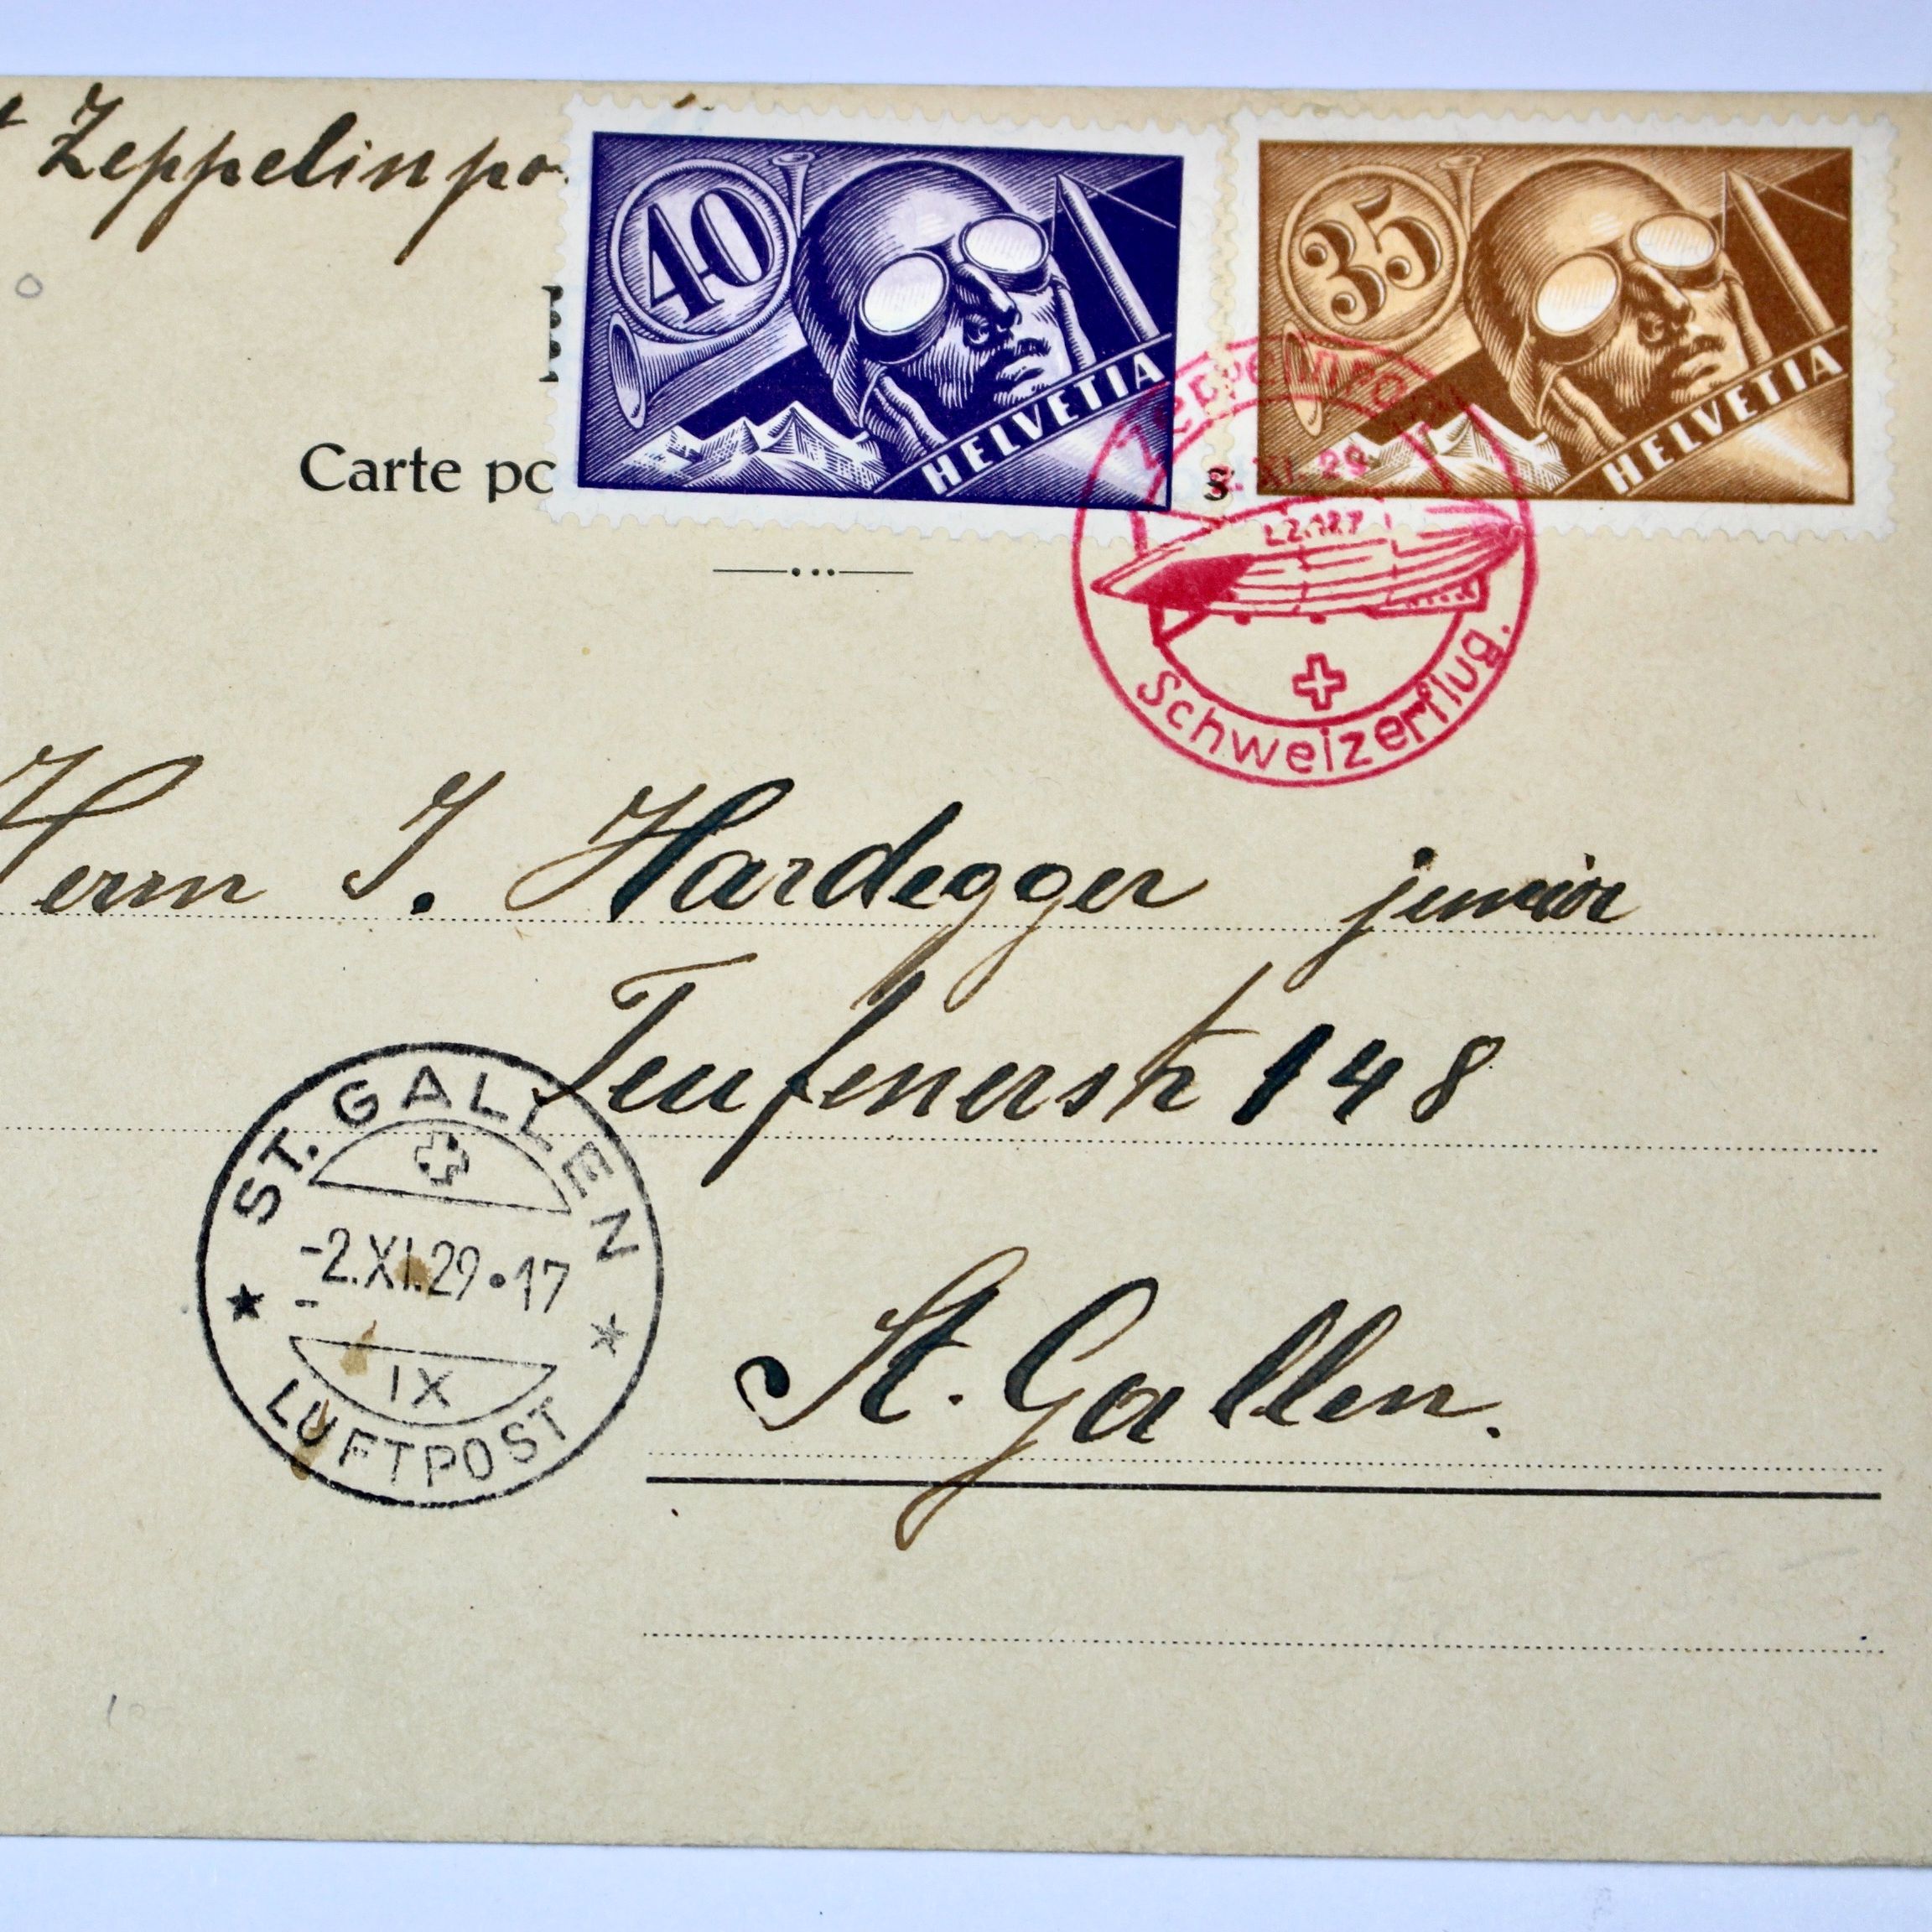 Zeppelinpo
40
HELVETIA
35
HELVETIA
Carte po
s
Zeppelinpo
XI. 29
LZ.127
Schweizerflug.
Herrn J. Hardegger junior
Teufenerstr 148
St. Gallen.
ST. GALLEN
-2.XI.29•17
IX
LUFTPOST